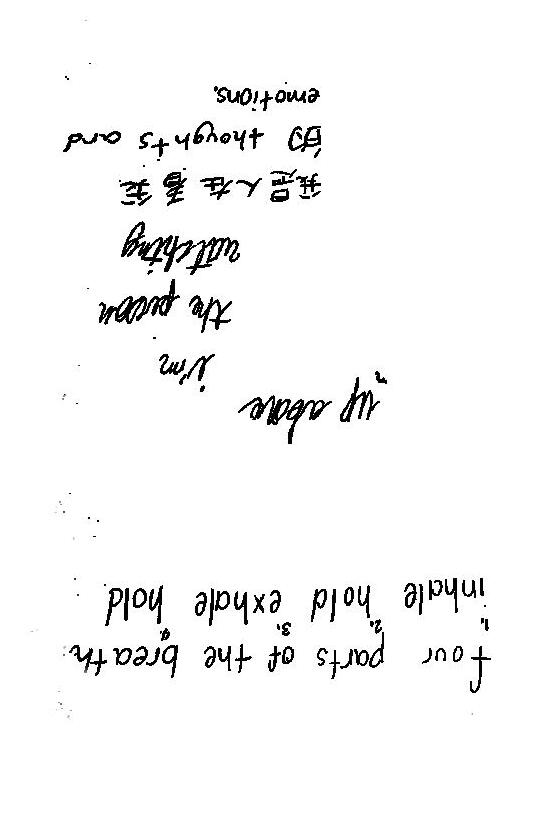 four parts of the breath
1. inhale 2. hold 3. exhale 4. hold
up above
i'm
the person
watching
我是人在看我
的 thoughts and
emotions.